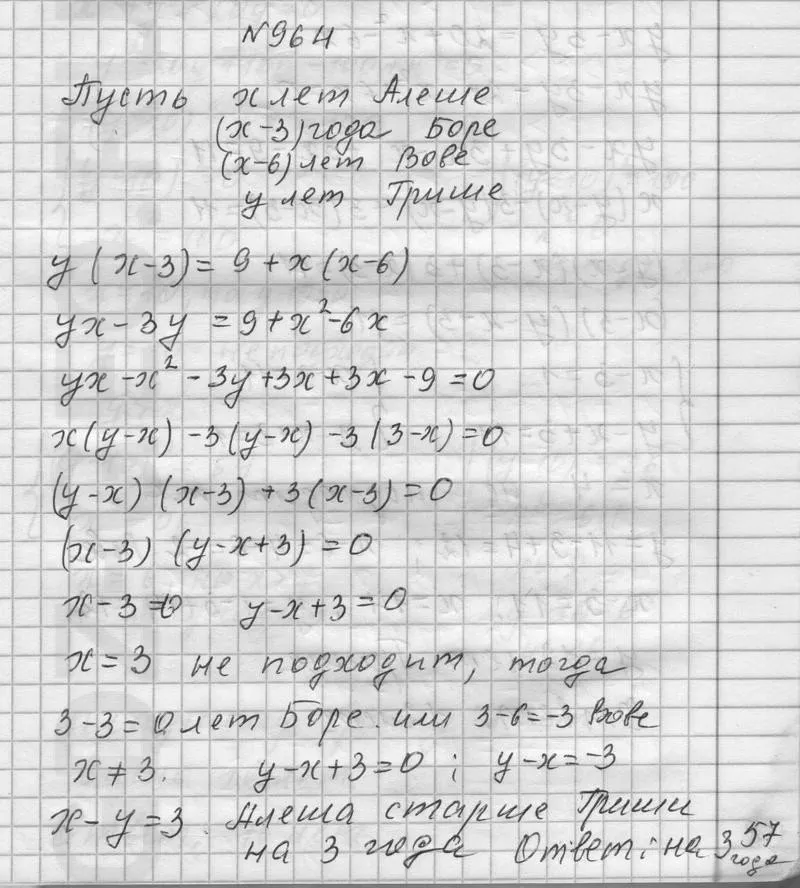 №964
Пусть x лет Алеше
(x-3) года Боре
(x-6) лет Вове
y лет Грише
y (x-3) = 9 + x (x-6)
yx - 3y = 9 + x² - 6x
yx - x² - 3y + 3x + 3x - 9 = 0
x(y-x) - 3(y-x) - 3(3-x) = 0
(y-x) (x-3) + 3(x-3) = 0
(x-3) (y-x+3) = 0
x - 3 = 0 y-x+3 = 0
x = 3 не подходит, тогда
3-3 = 0 лет Боре или 3-6 = -3 Вове
x ≠ 3. y-x+3 = 0 ; y-x = -3
x - y = 3. Алеша старше Гриши
на 3 года Ответ: на 3 года
57